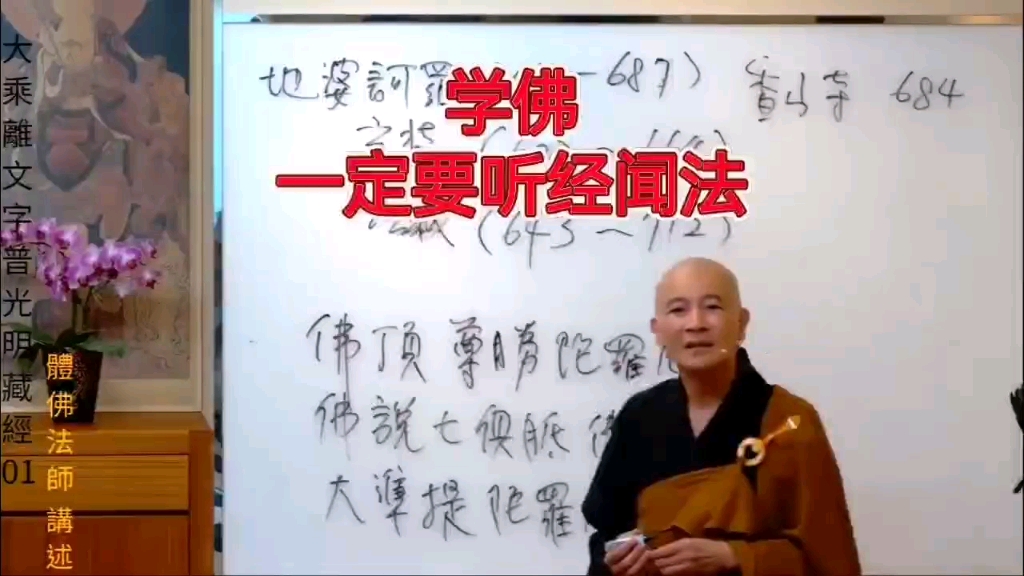 大乘離文字普光明藏經01
體佛法師講述
学佛
一定要听经闻法
地婆訶羅 -687) 香山寺 684
(643～712)
佛頂尊勝陀羅
佛說七俱胝佛
大準提陀羅